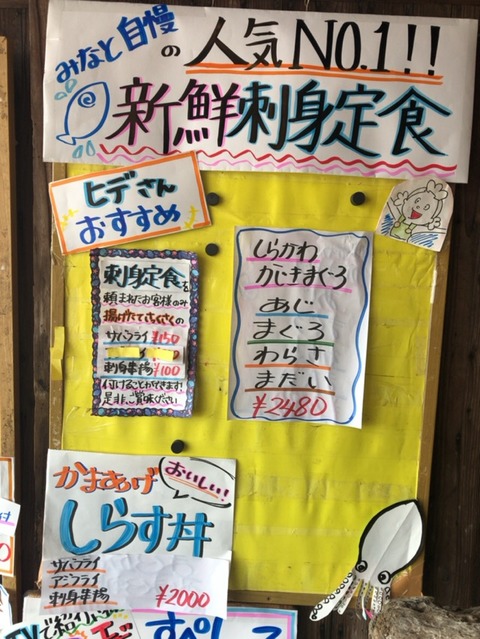 みなと自慢の人気NO.1!!
新鮮刺身定食
ヒデさん
おすすめ
刺身定食を
頼まれたお客様のみ
揚げたてさくさくの
サバフライ¥150
刺身串揚¥100
付けることができます!
是非、ご賞味ください
しらかわ
かじきまぐろ
あじ
まぐろ
わらさ
まだい
¥2480
かまあげ
おいしい!
しらす丼
サバフライ
アジフライ
刺身串揚
¥2000